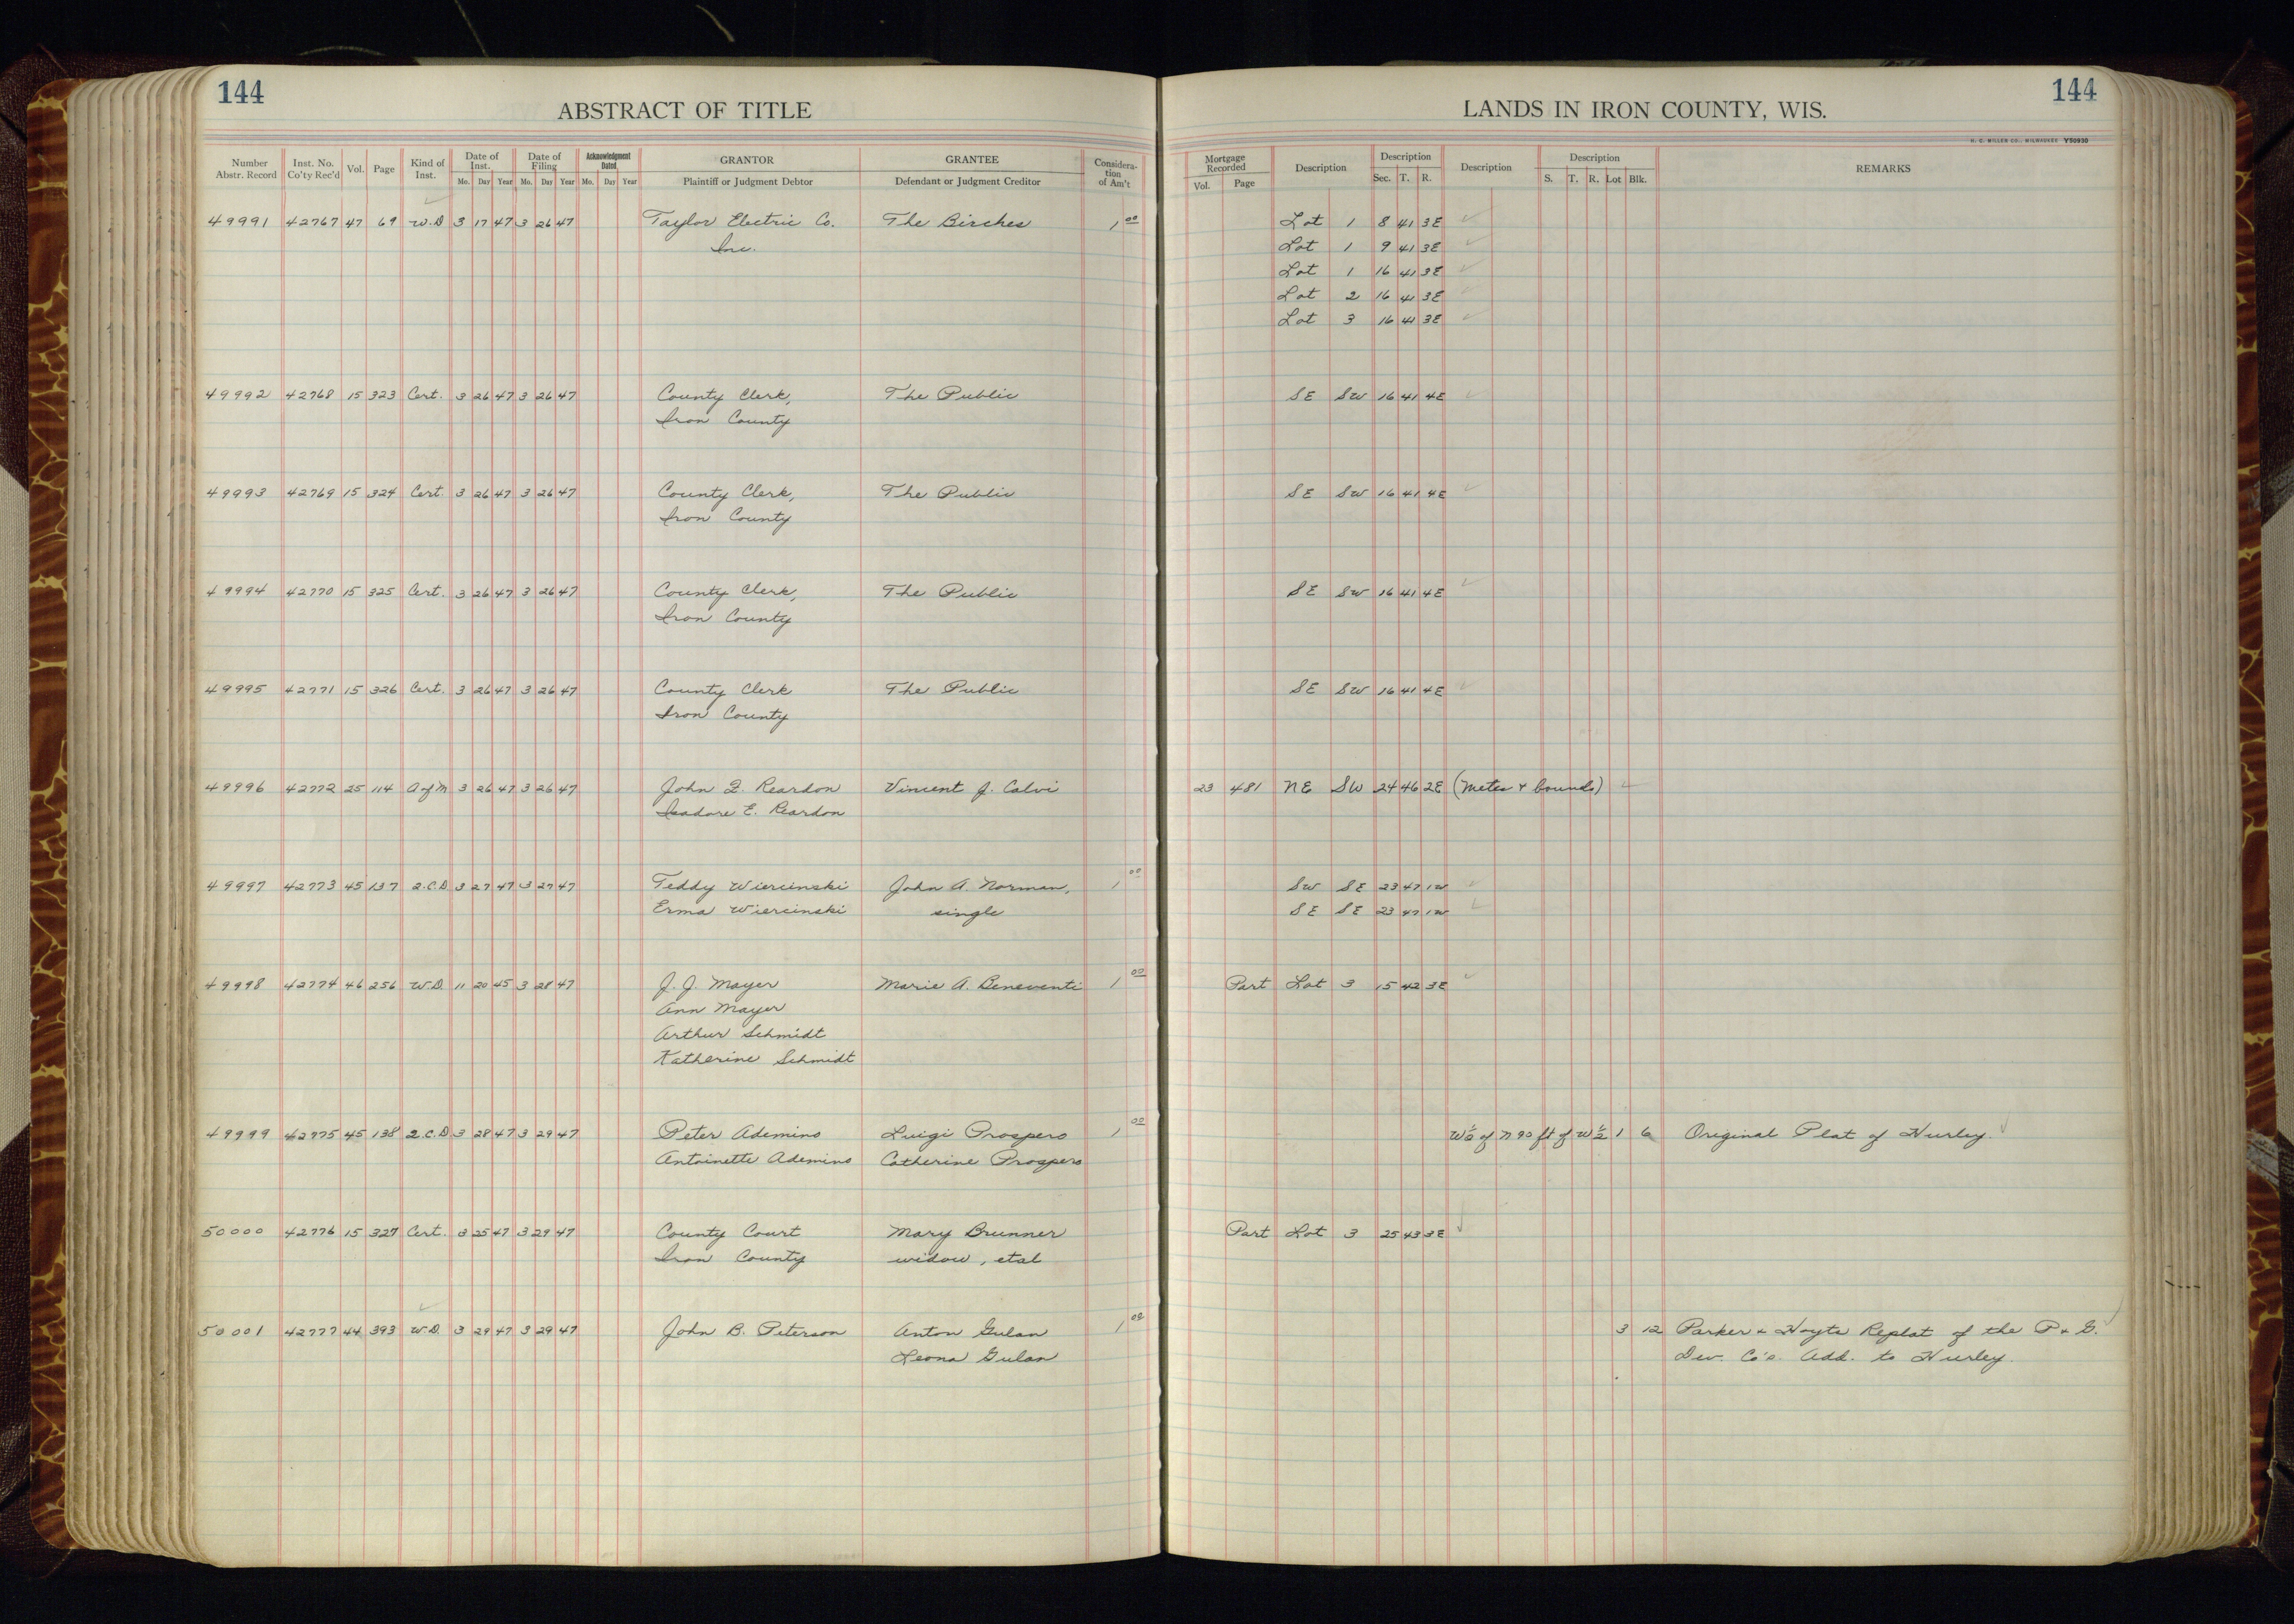 144
ABSTRACT OF TITLE
Number Abstr. Record | Inst. No. Co'ty Rec'd | Vol. | Page | Kind of Inst. | Date of Inst. Mo. Day Year | Date of Filing Mo. Day Year | Acknowledgment Dated Mo. Day Year | GRANTOR Plaintiff or Judgment Debtor | GRANTEE Defendant or Judgment Creditor | Considera-tion of Am't
LANDS IN IRON COUNTY, WIS.
144
H. C. MILLER CO., MILWAUKEE Y50930
Mortgage Recorded Vol. Page | Description | Description Sec. T. R. | Description | Description S. T. R. Lot Blk. | REMARKS
49991 42767 47 69 W.D 3 17 47 3 26 47 Taylor Electric Co. The Birches 1 00 Lot 1 8 41 3E
Inc. Lot 1 9 41 3E
Lot 1 16 41 3E
Lot 2 16 41 3E
Lot 3 16 41 3E
49992 42768 15 323 Cert. 3 26 47 3 26 47 County Clerk, The Public SE SW 16 41 4E
Iron County
49993 42769 15 324 Cert. 3 26 47 3 26 47 County Clerk, The Public SE SW 16 41 4E
Iron County
49994 42770 15 325 Cert. 3 26 47 3 26 47 County Clerk, The Public SE SW 16 41 4E
Iron County
49995 42771 15 326 Cert. 3 26 47 3 26 47 County Clerk The Public SE SW 16 41 4E
Iron County
49996 42772 25 114 A of M 3 26 47 3 26 47 John F. Reardon Vincent J. Calvi 23 481 NE SW 24 46 2E (Metes & bounds)
Isadore E. Reardon
49997 42773 45 137 Q.C.D 3 27 47 3 27 47 Teddy Wiercinski John A. Norman, 1 00 SW SE 23 47 1W
Erma Wiercinski single SE SE 23 47 1W
49998 42774 46 256 W.D. 11 20 45 3 28 47 J. J. Mayer Marie A. Beneventi 1 00 Part Lot 3 15 42 3E
Ann Mayer
Arthur Schmidt
Katherine Schmidt
49999 42775 45 138 Q.C.D. 3 28 47 3 29 47 Peter Ademino Luigi Prospero 1 00 W½ of N 90 ft of W½ 1 6 Original Plat of Hurley.
Antoinette Ademino Catherine Prospero
50000 42776 15 327 Cert. 3 25 47 3 29 47 County Court Mary Brunner Part Lot 3 25 43 3E
Iron County widow, etal
50001 42777 44 393 W.D. 3 29 47 3 29 47 John B. Peterson Anton Gulan 1 00 3 12 Parker & Hoyts Replat of the P & G.
Leona Gulan Dev. Co's. Add. to Hurley.